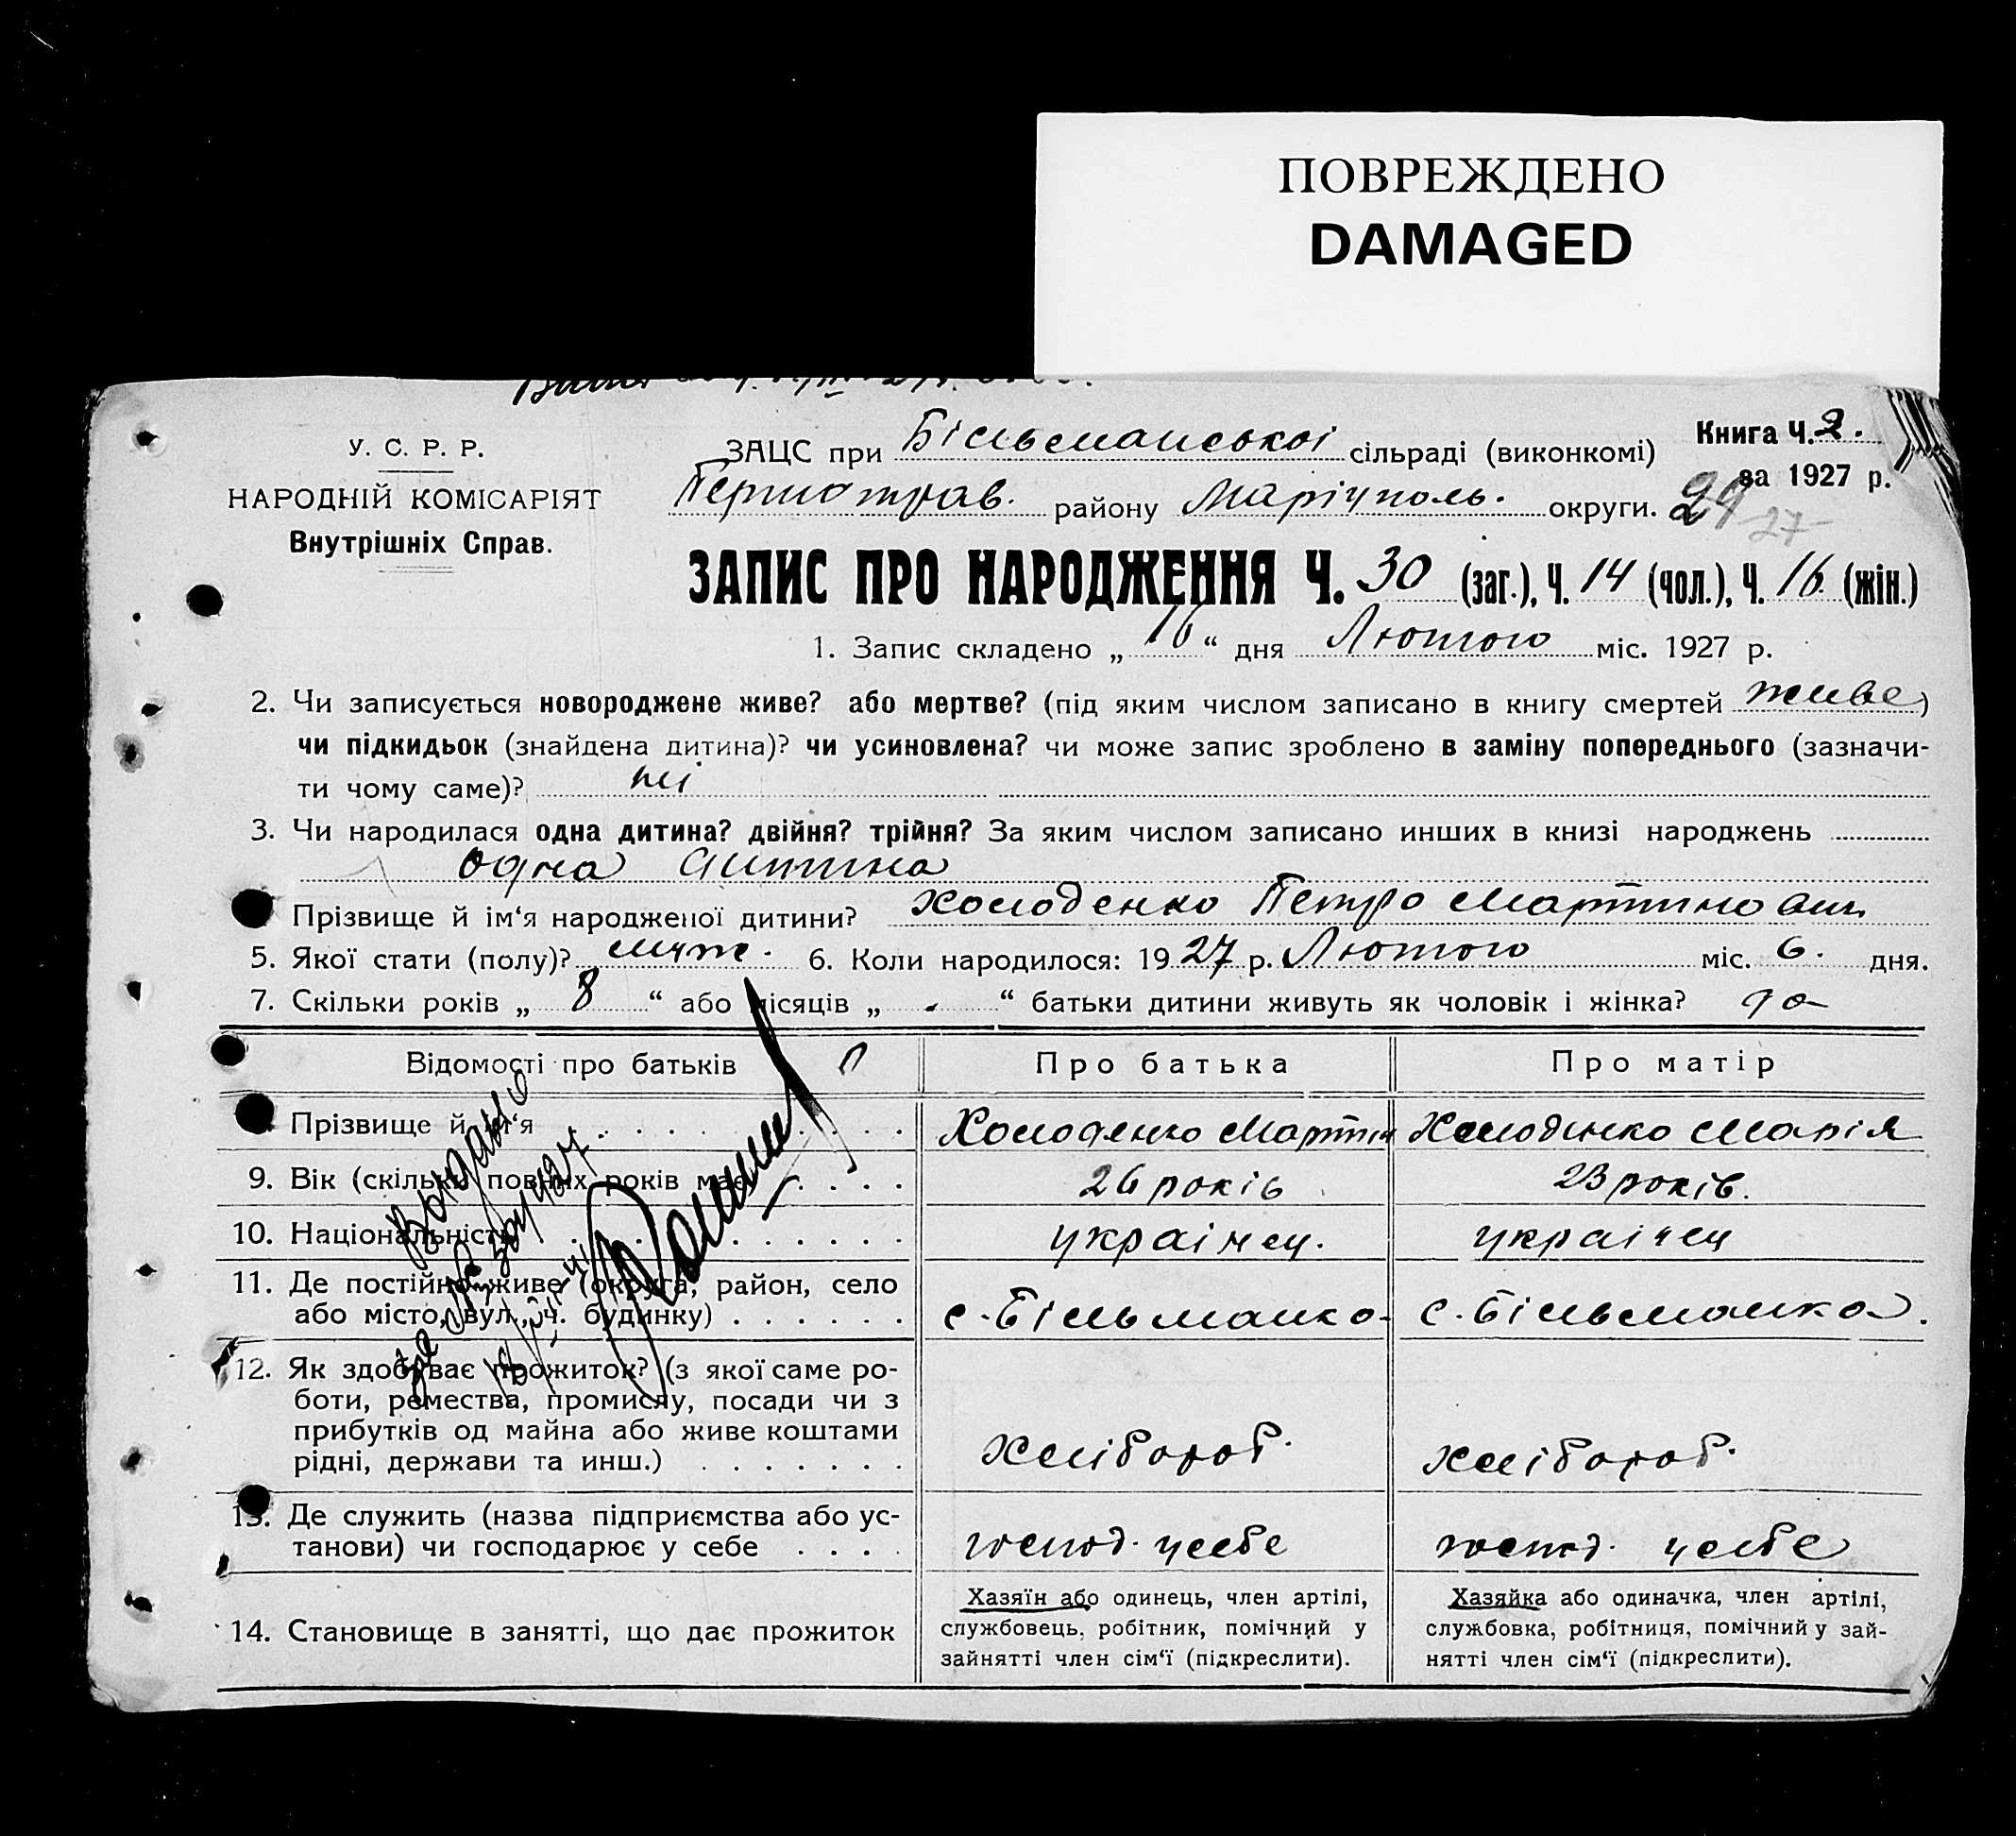 ПОВРЕЖДЕНО
DAMAGED
У. С. Р. Р.
НАРОДНІЙ КОМІСАРІЯТ
Внутрішніх Справ.
ЗАЦС при Більманської сільраді (виконкомі)
Книга Ч. 2.
за 1927 р.
Першотрав. району Маріуполь. округи. 29 27
ЗАПИС ПРО НАРОДЖЕННЯ Ч. 30 (заг.), Ч. 14 (чол.), Ч. 16. (жін.)
1. Запис складено „ 16 “ дня Лютого міс. 1927 р.
2. Чи записується новороджене живе? або мертве? (під яким числом записано в книгу смертей живе)
чи підкидьок (знайдена дитина)? чи усиновлена? чи може запис зроблено в заміну попереднього (зазначи-
ти чому саме)? ні
3. Чи народилася одна дитина? двійня? трійня? За яким числом записано инших в книзі народжень
одна дитина
Прізвище й ім‘я народженої дитини? Холоденко Петро Мартинович
5. Якої стати (полу)? муж. 6. Коли народилося: 1927 р. Лютого міс. 6. дня.
7. Скільки років „ 8 “ або місяців „ - “ батьки дитини живуть як чоловік і жінка? да
Відомості про батьків
Про батька
Про матір
Прізвище й ім‘я . . . . . . . . . .
Холоденко Мартин
Холоденко Марія
9. Вік (скільки повних років має) . . . .
26 років
23 років.
10. Національність . . . . . . . . . .
українец.
українец
11. Де постійно живе (округа, район, село
або місто, вул., ч. будинку) . . . . . .
с. Більманка.
с. Більманка.
12. Як здобуває прожиток? (з якої саме ро-
боти, ремества, промислу, посади чи з
прибутків од майна або живе коштами
рідні, держави та инш.) . . . . . . .
хлібороб.
хлібороб.
13. Де служить (назва підприємства або ус-
танови) чи господарює у себе . . . .
господ. у себе
господ. у себе
14. Становище в занятті, що дає прожиток
Хазяїн або одинець, член артілі,
службовець, робітник, помічний у
зайнятті член сім‘ї (підкреслити).
Хазяйка або одиначка, член артілі,
службовка, робітниця, помічний у зай-
нятті член сім‘ї (підкреслити).
Выдано